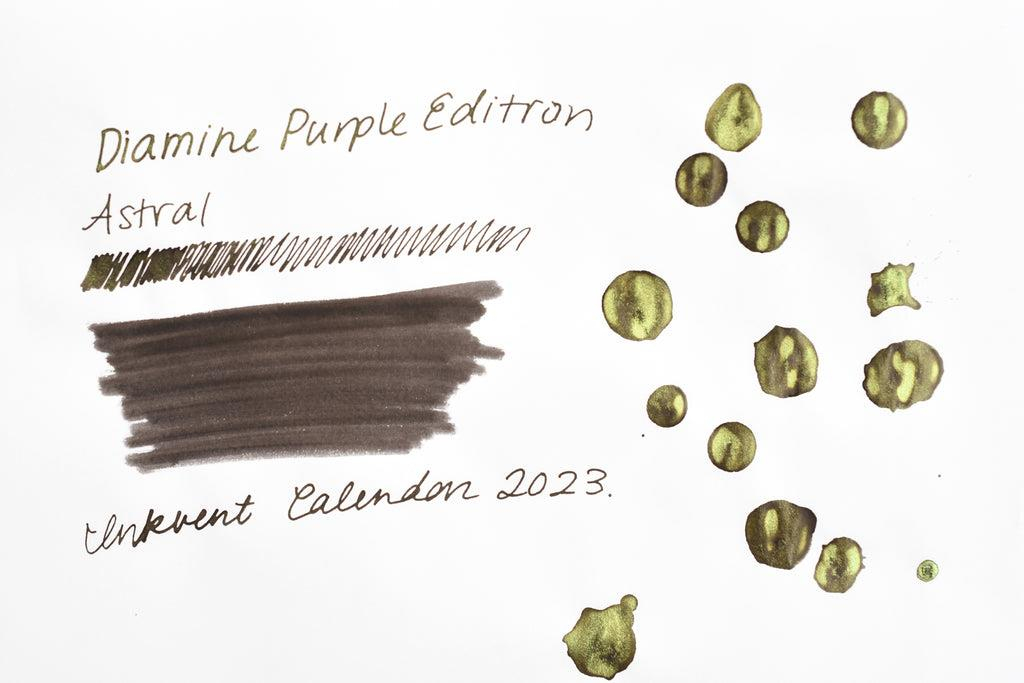 Diamine Purple Editron
Astral
Inkvent Calendar 2023.